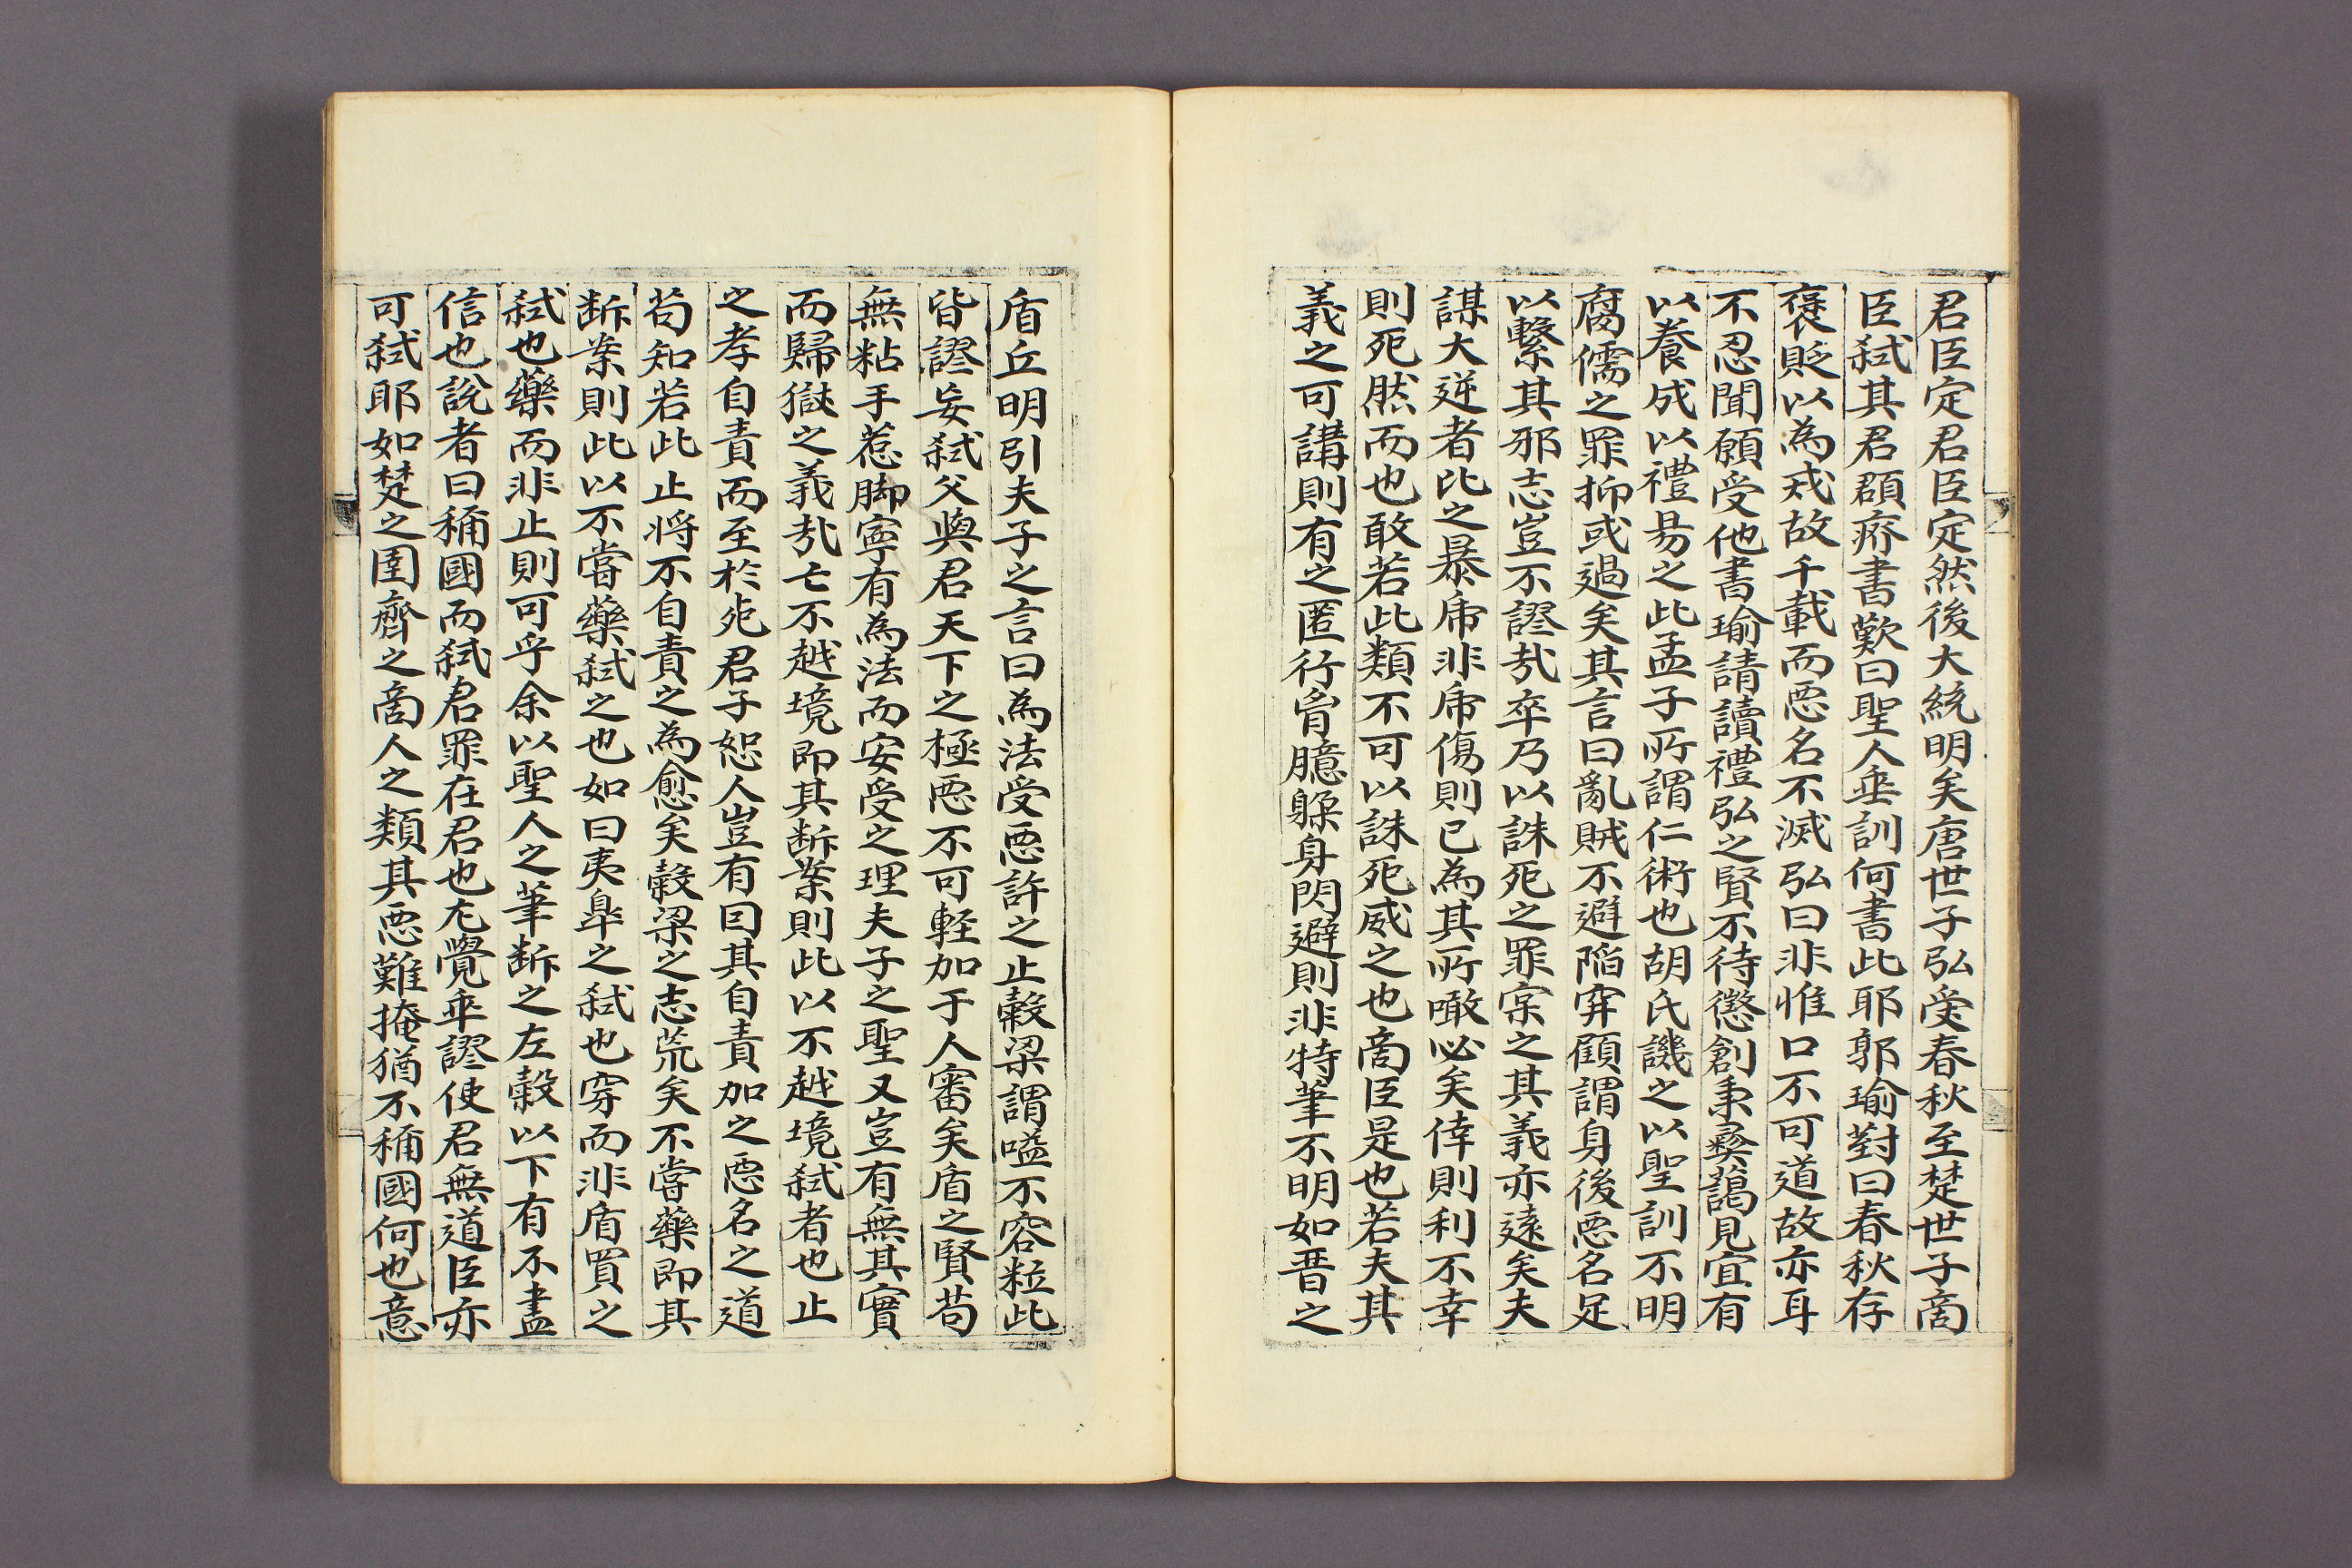 君臣定君臣定然後大統明矣唐世子弘受春秋至楚世子商
臣弑其君頵廢書歎曰聖人垂訓何書此耶郭瑜對曰春秋存
褒貶以為戒故千載而惡名不滅弘曰非惟口不可道故亦耳
不忍聞願受他書瑜請讀禮弘之賢不待懲創秉彝藹見宜有
以養成以禮易之此孟子所謂仁術也胡氏譏之以聖訓不明
腐儒之罪抑或過矣其言曰亂賊不避陷穽顧謂身後惡名足
以繫其邪志豈不謬㢤卒乃以誅死之罪宲之其義亦遠矣夫
謀大逆者比之暴虎非虎傷則已為其所噉必矣倖則利不幸
則死然而也敢若此類不可以誅死威之也商臣是也若夫其
義之可講則有之匿行胷臆躱身閃避則非特筆不明如晋之
盾丘明引夫子之言曰為法受惡許之止糓梁謂嗌不容粒此
皆謬妄弑父與君天下之極惡不可輕加于人審矣盾之賢苟
無粘手惹脚寧有為法而安受之理夫子之聖又豈有無其實
而歸獄之義㢤亡不越境即其断案則此以不越境弑者也止
之孝自責而至於死君子恕人豈有曰其自責加之惡名之道
苟知若此止将不自責之為愈矣糓梁之志荒矣不嘗藥即其
断案則此以不嘗藥弑之也如曰夷皐之弑也穿而非盾買之
弑也藥而非止則可乎余以聖人之筆断之左糓以下有不盡
信也說者曰稱國而弑君罪在君也尤覺乖謬使君無道臣亦
可弑耶如楚之圍齊之商人之類其惡難掩猶不稱國何也意